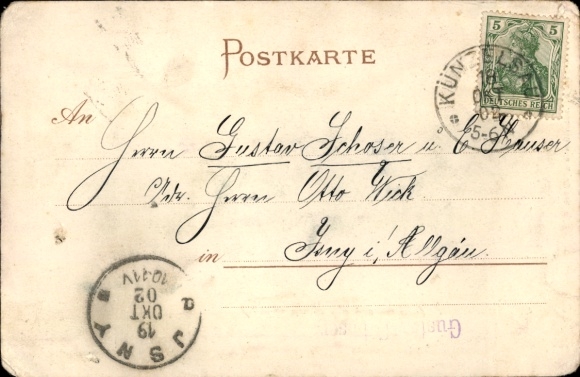 POSTKARTE
5 5
DEUTSCHES REICH
KÜNZELSAU
18
OKT
02
5-6N
An
Herrn Gustav Schoser u. E. Hauser
Adr. Herrn Otto Wick.
in Isny i/Allgäu.
JSNY
19
OKT
02
10-11V
a